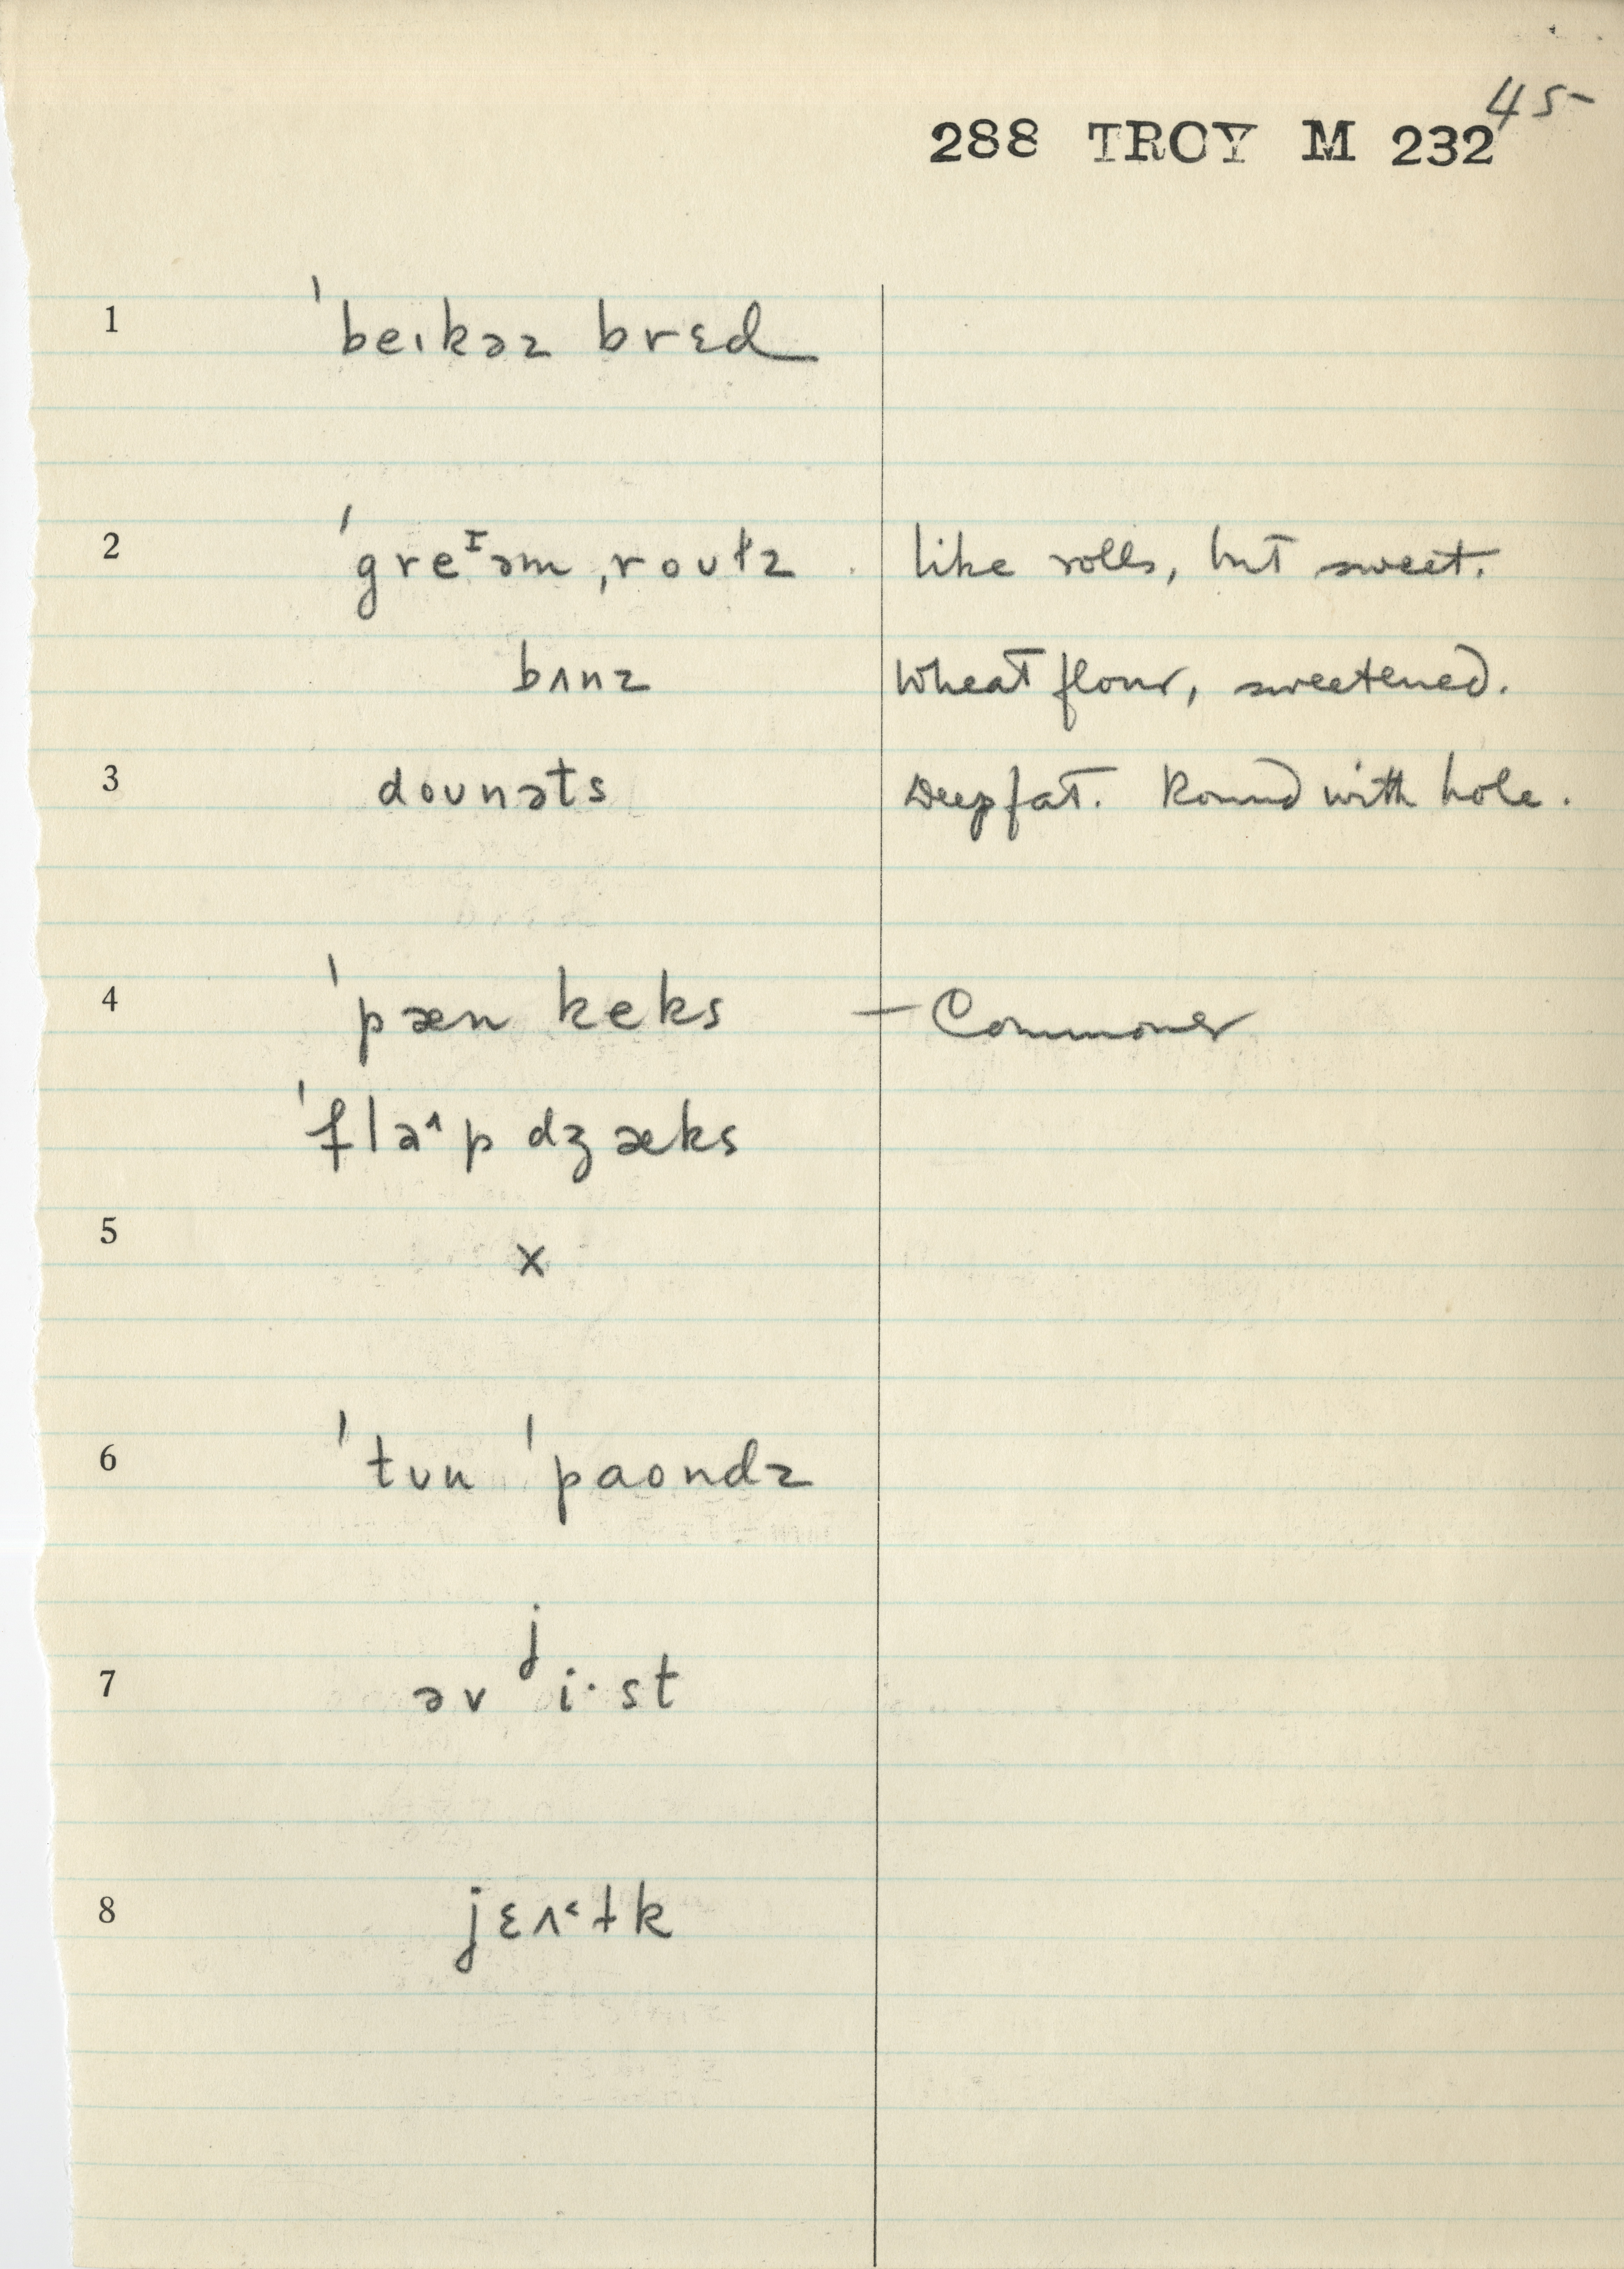 45
288 TROY M 232
1 ˈbeɪkəz brɛd
2 ˈgreᴵəm ˌroʊɫz like rolls, but sweet.
bʌnz Wheat flour, sweetened.
3 doʊnəts Deep fat. Round with hole.
4 ˈpæn keks – Commoner
ˈflə^p dʒæks
5 x
6 ˈtʊu ˈpaondz
7 əv ʲi·st
8 jɛʌ˂ɫk